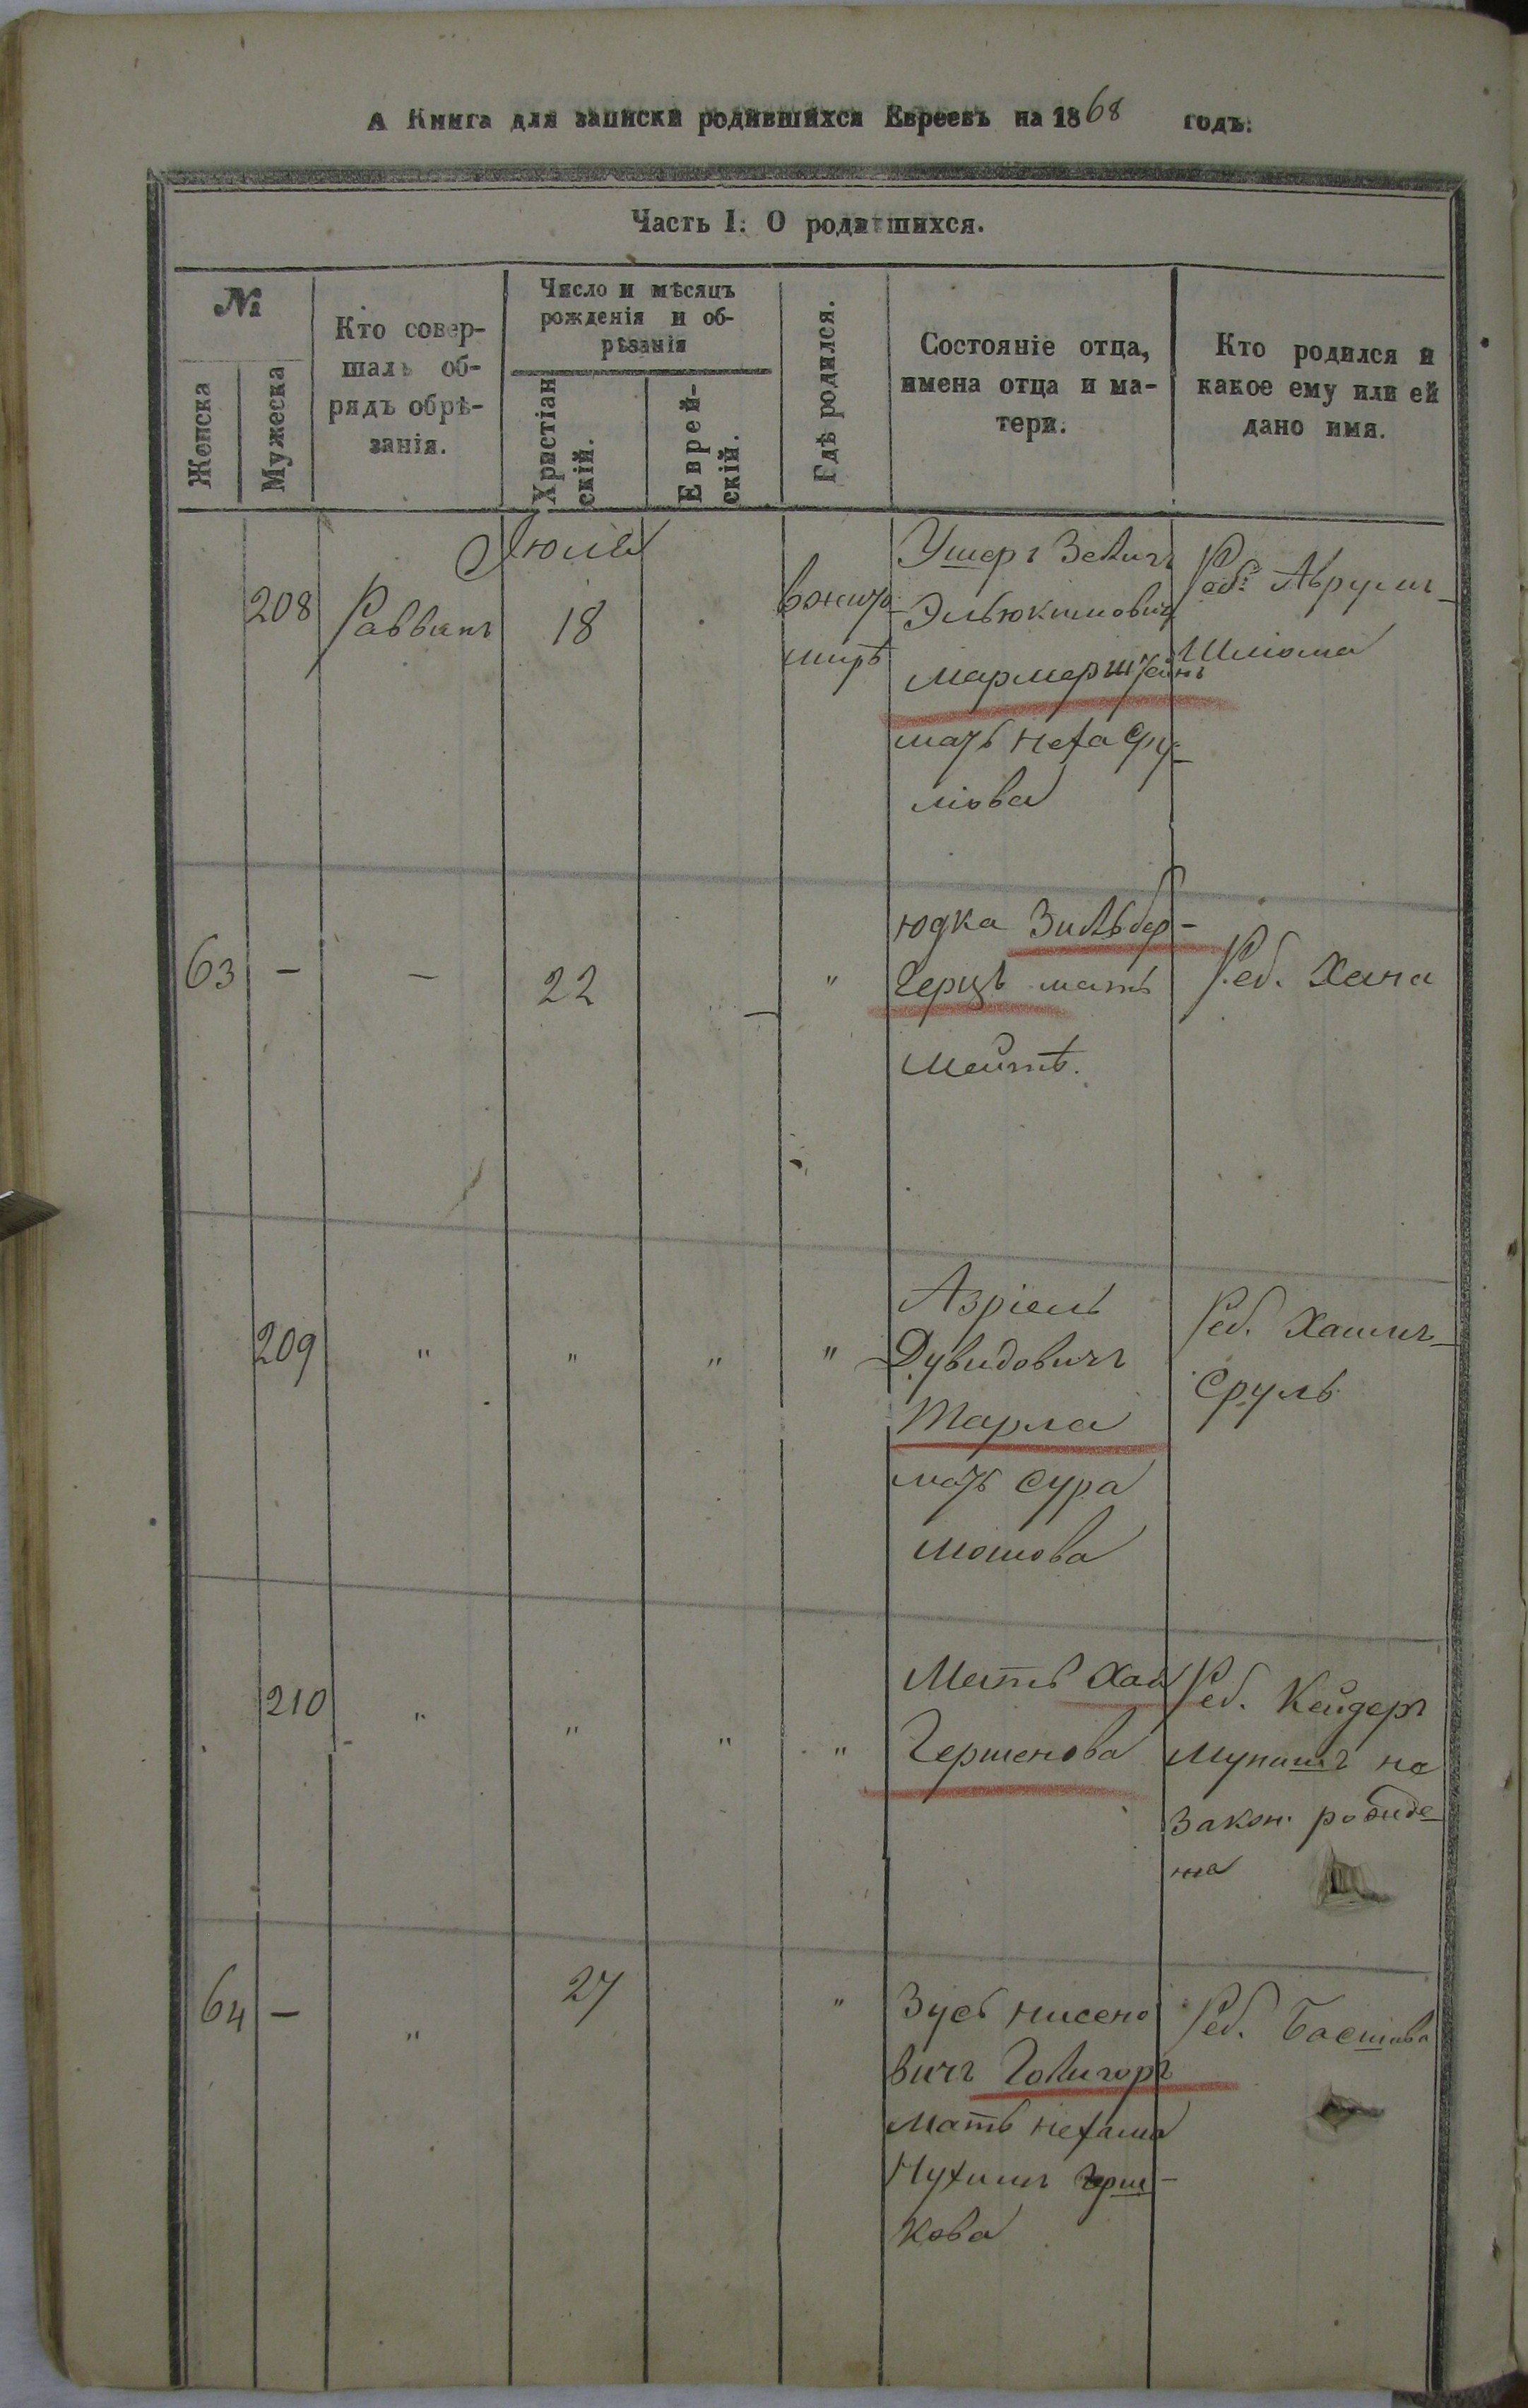 А Книга для записки родившихся Евреевъ на 1868 годъ:
Часть I: О родившихся.
№
Женска
Мужеска
Кто совер-
шалъ об-
рядъ обрѣ-
занія.
Число и мѣсяцъ
рожденія и об-
рѣзанія
Христіан
скій.
Еврей-
скій.
Гдѣ родился.
Состояніе отца,
имена отца и ма-
тери.
Кто родился и
какое ему или ей
дано имя.
Июля
208
Раввинъ
18
вжито-
мирѣ
Ушеръ Зелигъ
Эльюкимовичъ
Мармерштейнъ
мать Неха Сру-
лова
Реб. Аврумъ-
Шлиома
63 -
-
22
-
"
Юдка Зильбер-
герцъ мать
Мейтѣ.
Реб. Хана
209
"
"
"
"
Азріель
Дувидовичъ
Тарла
мать Сура
Мошова
Реб. Хаимъ-
Сруль
210
"
"
"
"
Мать Хая
Гершенова
Реб.
не
закон. робиде-
на
64 -
"
27
"
Зусь Нисено
вичъ Голигоръ
мать Нехама
Нухимъ Герш-
кова
Реб. Басшива